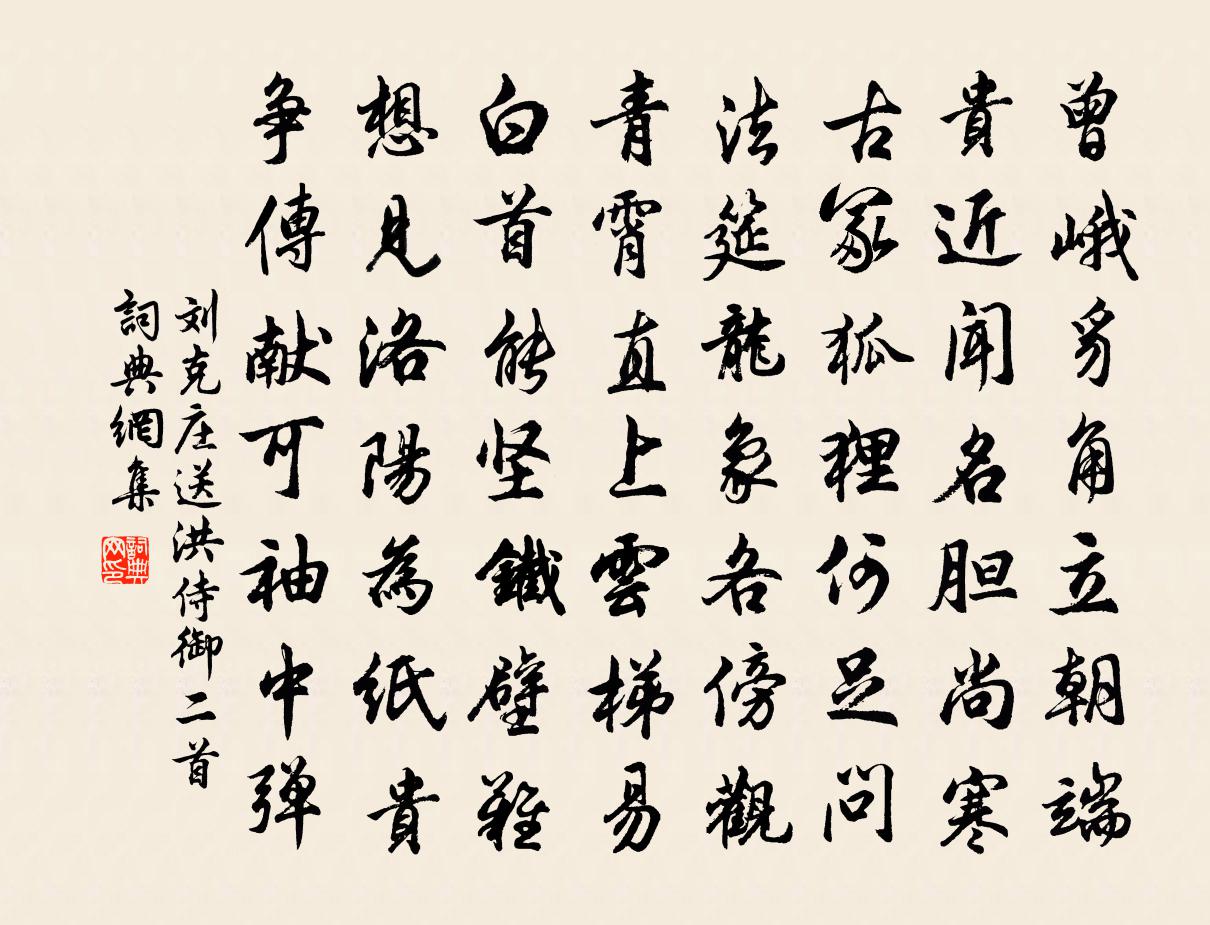 曾峨豸角立朝端
貴近闻名胆尚寒
古冢狐狸何足问
法筵龍象各傍觀
青霄直上雲梯易
白首能坚鐵壁難
想見洛陽為紙貴
争傳献可袖中弹
刘克庄送洪侍御二首
詞典網集
詞典网印